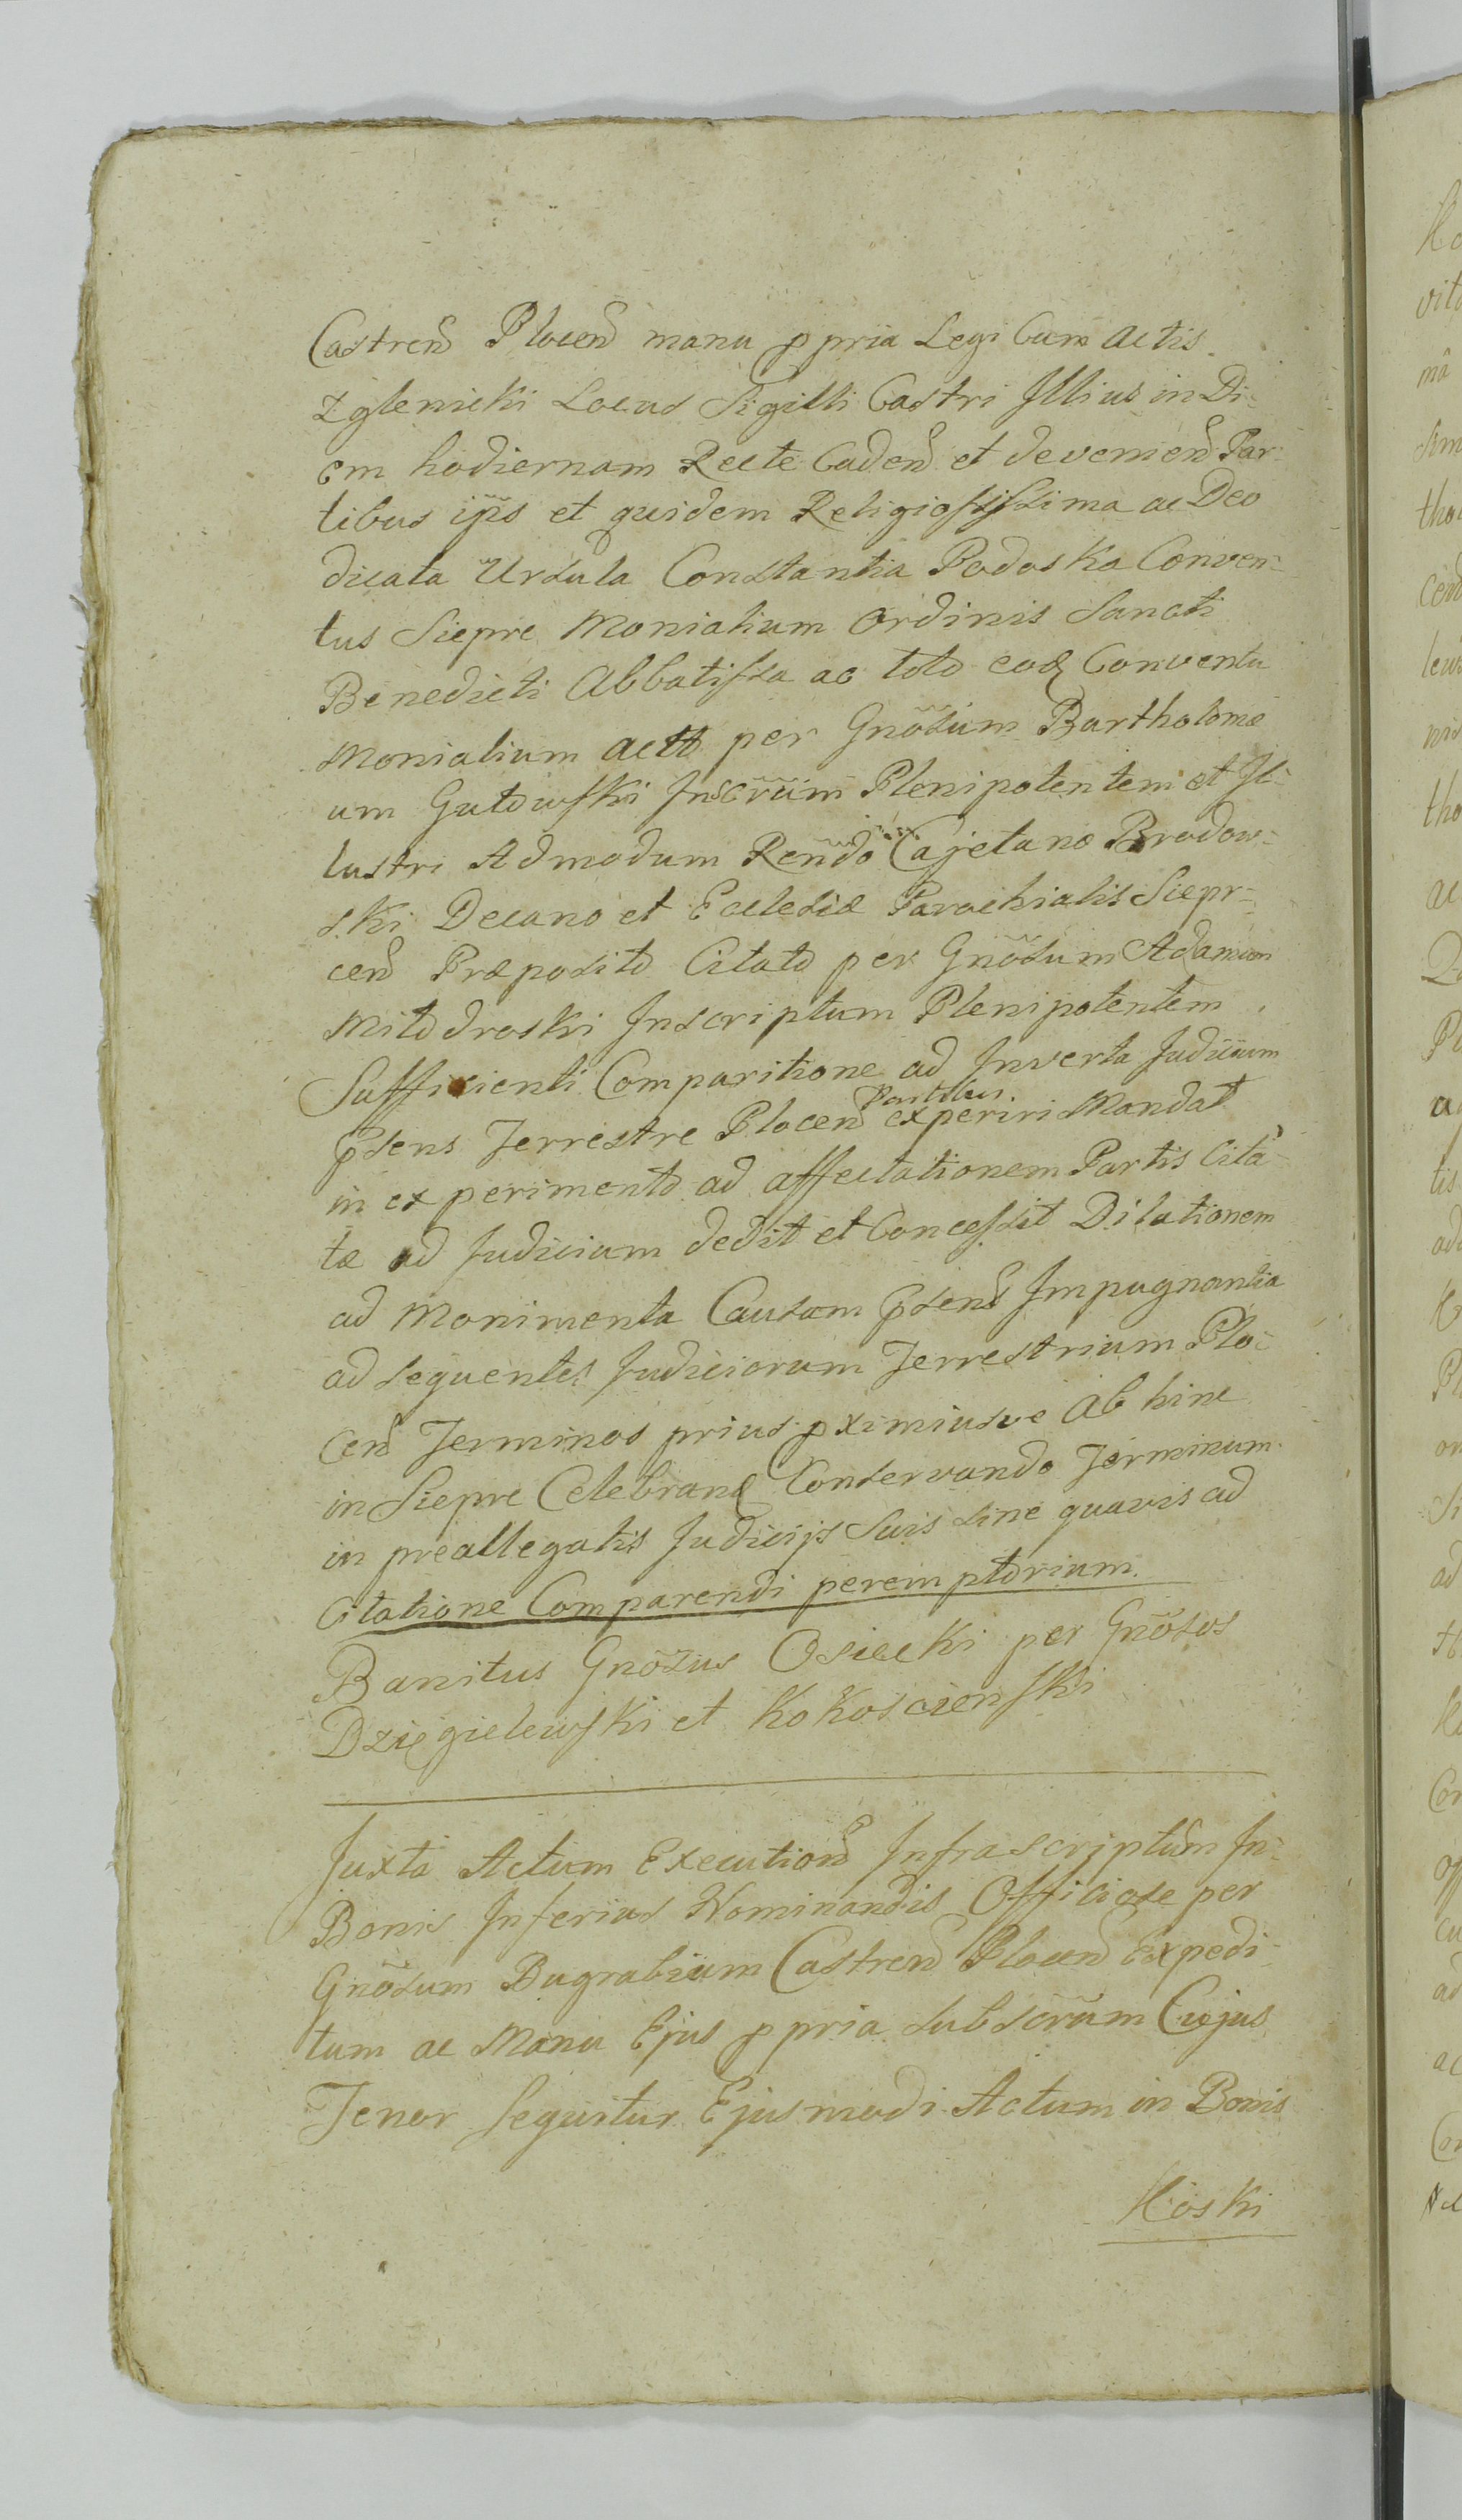 Castren̄ Plocen̄ manu ppria Legi Cum actis
Zglenicki Locus Sigilli Castri Illius in Di-
em hodiernam Recte Caden̄ et devenien̄ Par-
tibus ip̄s et quidem Religiosissima ac Deo
dicata Ursula Constantia Podoska Conven-
tus Sierpc Monialium Ordinis Sancti
Benedicti Abbatissa ac toto eod Conventu
Monialium actto per Gnōsum Bartholomæ
um Gutowski Inscr̄um Plenipotentem et Il-
lustri Admodum Ren̄do Cajetano Brodow-
ski Decano et Ecclesiæ Parochialis Sierp-
cen̄ Præposito Citato per Gnōsum Adamum
Milodroski Inscriptum Plenipotentem
Sufficienti Comparitione ad Inverta Judicium
p̄sens Terrestre Plocen̄ Partibus experiri Mandat
in experimento ad affectationem Partis Cita-
tæ ad Judicium dedit et Concessit Dilationem
ad Monimenta Causam p̄sen̄ Impugnantia
ad sequentes Judiciorum Terrestrium Plo-
cen̄ Terminos prius pximiusve ab hinc
in Sierpc Celebrand Conservando Terminum
in preallegatis Judicijs Suis sine quavis ad
Citatione Comparendi peremptorium.
Banitus Gnōsus Osiecki per Gnōsos
Dzięgielewski et Kokoscienski
Juxta Actum Execution̄ Infrascriptum In
Bonis Inferius Nominandis Officiose per
Gnōsum Bugrabium Castren̄ Plocen̄ Expedi-
tum ac Manu Ejus ppria subscr̄um Cujus
Tenor Sequitur Ejusmodi Actum in Bonis